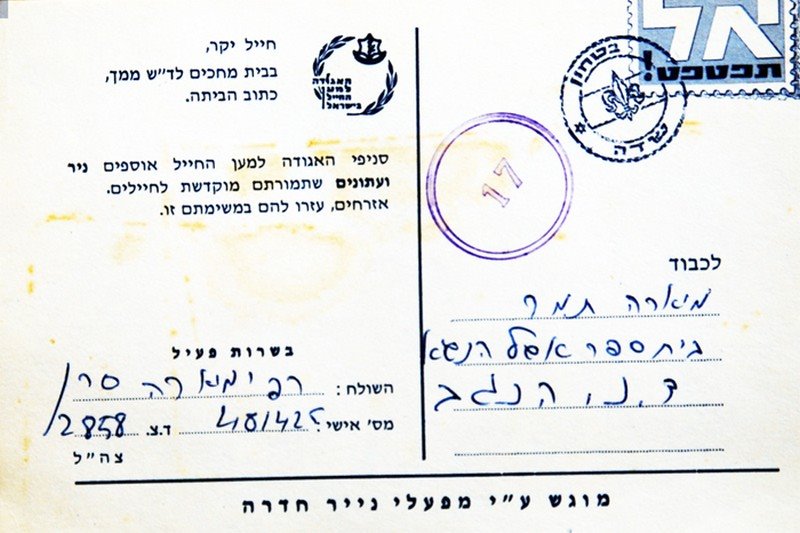 חייל יקר,
בבית מחכים לד"ש ממך,
כתוב הביתה.
האגודה
למען
החייל
בישראל
סניפי האגודה למען החייל אוספים ניר
ועתונים שתמורתם מוקדשת לחיילים.
אזרחים, עזרו להם במשימתם זו.
בשרות פעיל
השולח: רפי מיארה סר'
מס' אישי: ד.צ. 2858
צה"ל
אל
תפטפט!
בטחון
שדה
17
לכבוד
מיארה תמר
בית ספר אשל הנשיא
ד.נ. הנגב
מוגש ע"י מפעלי נייר חדרה